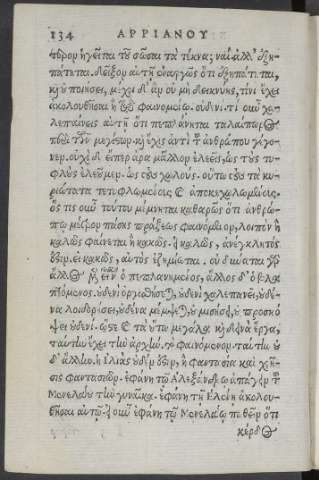 134 ΑΡΡΙΑΝΟΥ
τερον ἡγεῖται τοῦ σῶσαι τὰ τέκνα; ναί. ἀλλ' ἐξη-
πάτηται. δεῖξον αὐτῇ ἐναργῶς ὅτι ἐξηπάτηται,
καὶ οὐ ποιήσει, μέχρι δ' ἂν οὗ μὴ δεικνύῃς, τίνι ἔχει
ἀκολουθῆσαι ἢ τῷ φαινομένῳ. οὐδενί. τί οὖν χα-
λεπαίνεις αὐτῇ ὅτι πεπλάνηται ταλαίπωρος
περὶ τῶν μεγίστων. καὶ ἔχις ἀντὶ τοῦ ἀνθρώπου γέγο-
νεν. οὐχὶ δὲ εἴπερ ἄρα μᾶλλον ἐλεεῖς, ὡς τοὺς τυ-
φλοὺς ἐλεοῦμεν. ὡς τοὺς χωλούς. οὕτω τοὺς τὰ κυ-
ριώτατα τετυφλωμένοις καὶ ἀποκεχωλωμένοις.
ὅς τις οὖν τούτου μέμνηται καθαρῶς ὅτι ἀνθρώ-
πῳ μέτρον πάσης πράξεως φαινόμενον, λοιπὸν ἢ
καλῶς φαίνεται ἢ κακῶς. ἢ καλῶς, ἀνέγκλητός
ἐστιν. εἰ κακῶς, αὐτὸς ἐζημίωται. οὐ δύναται γὰρ
ἄλλος μὲν εἶναι ὁ πεπλανημένος, ἄλλος δ' ὁ βλα-
πτόμενος. οὐδενὶ ὀργισθήσεται, οὐδενὶ χαλεπανεῖ, οὐδέ-
να λοιδορήσει, οὐδένα μέμψεται, οὐ μισήσει, οὐ προσκό
ψει οὐδενί. ὥστε καὶ τὰ οὕτω μεγάλα καὶ δεινὰ ἔργα,
ταύτην ἔχει τὴν ἀρχὴν. τὸ φαινόμενον. ταύτην οὐ
δ' ἄλλην. ἡ ἰλιὰς οὐδέν ἐστιν, ἢ φαντασία καὶ χρῆ-
σις φαντασιῶν. ἐφάνη τῷ Ἀλεξάνδρῳ ἀπάγειν τοῦ
Μενελάου τὴν γυναῖκα. ἐφάνη τῇ Ἑλένῃ ἀκολου-
θῆσαι αὐτῷ. εἰ οὖν ἐφάνη τῷ Μενελάῳ παθεῖν ὅτι
κέρδος